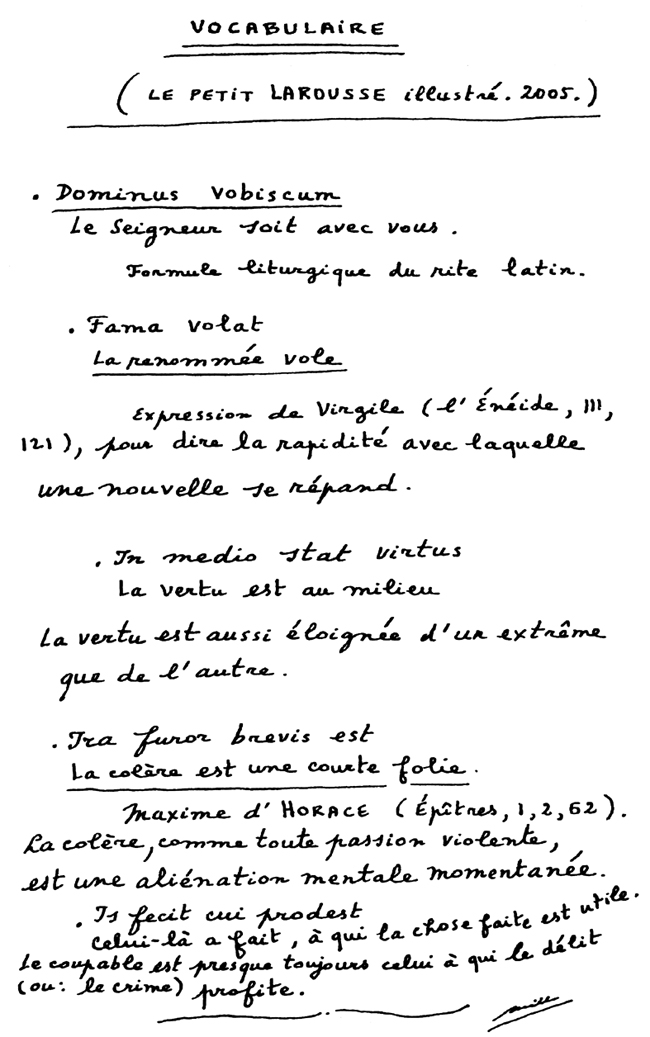 VOCABULAIRE
(LE PETIT LAROUSSE illustré. 2005.)
. Dominus vobiscum
Le Seigneur soit avec vous.
Formule liturgique du rite latin.
. Fama volat
La renommée vole
Expression de Virgile (l'Énéide, III,
121), pour dire la rapidité avec laquelle
une nouvelle se répand.
. In medio stat virtus
La vertu est au milieu
La vertu est aussi éloignée d'un extrême
que de l'autre.
. Ira furor brevis est
La colère est une courte folie.
Maxime d'HORACE (Épîtres, 1, 2, 62).
La colère, comme toute passion violente,
est une aliénation mentale momentanée.
. Is fecit cui prodest
celui-là a fait, à qui la chose faite est utile.
Le coupable est presque toujours celui à qui le délit
(ou: le crime) profite.